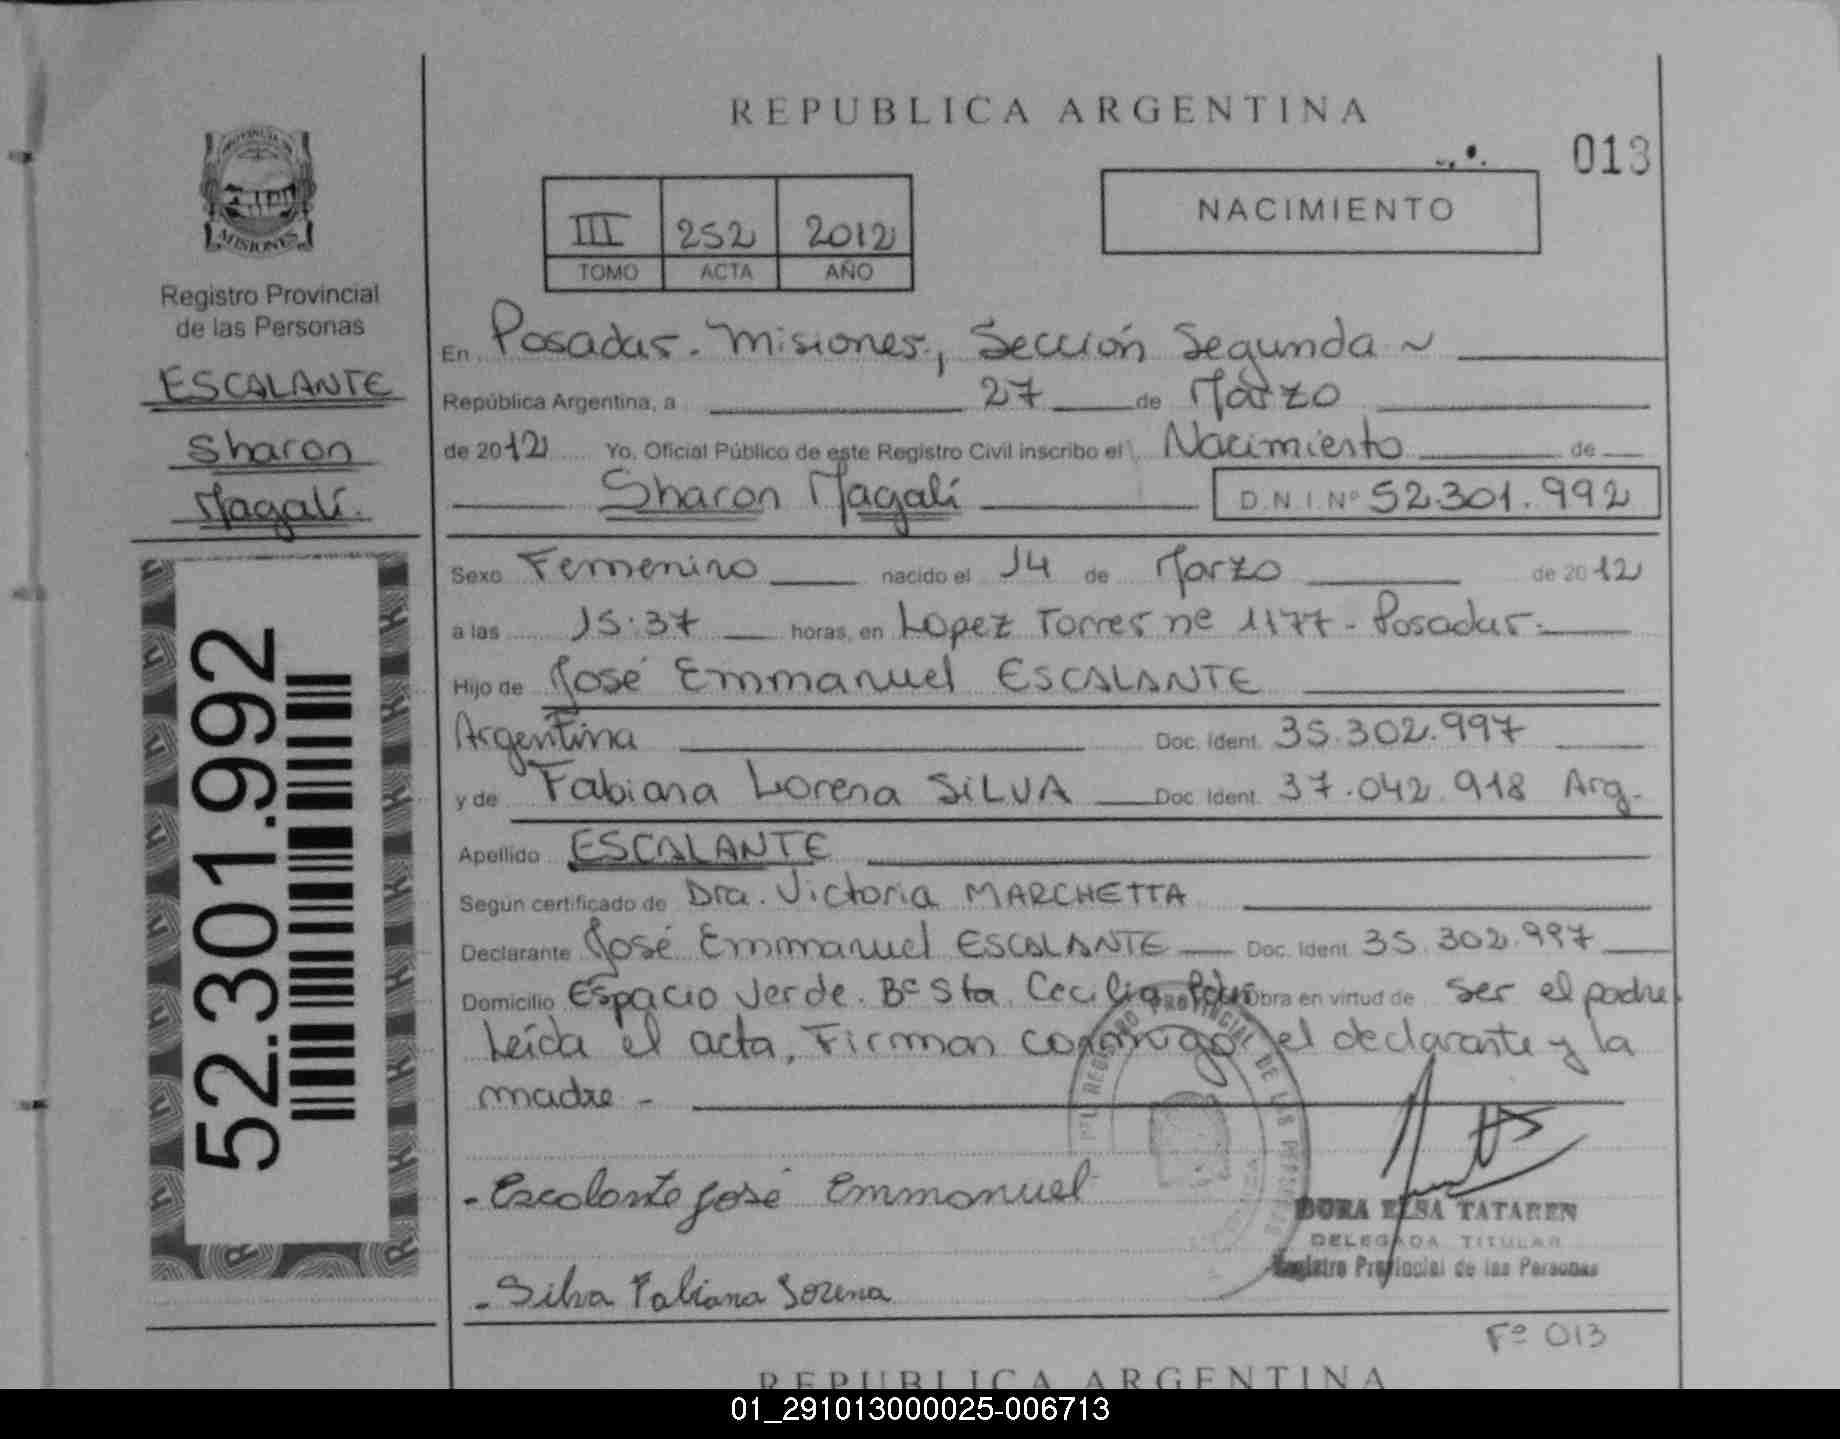 REPUBLICA ARGENTINA
013
NACIMIENTO
III 252 2012
TOMO ACTA AÑO
PROVINCIA
MISIONES
Registro Provincial
de las Personas
ESCALANTE
Sharon
Magalí.
52.301.992
En Posadas. Misiones, Sección Segunda ~
República Argentina, a 27 de Marzo
de 2012 Yo, Oficial Público de este Registro Civil inscribo el Nacimiento de
Sharon Magalí D.N.I.Nº 52.301.992
Sexo Femenino nacido el 14 de Marzo de 2012
a las 15:37 horas, en Lopez Torres nº 1177 - Posadas.
Hijo de José Emmanuel ESCALANTE
Argentina Doc. Ident. 35.302.997
y de Fabiana Lorena SILVA Doc. Ident. 37.042.918 Arg.
Apellido ESCALANTE
Según certificado de Dra. Victoria MARCHETTA
Declarante José Emmanuel ESCALANTE Doc. Ident. 35.302.997
Domicilio Espacio Verde. Bº Sta. Cecilia Pdas Obra en virtud de ser el padre.
Leída el acta, Firman conmigo el declarante y la
madre -
REGISTRO PROVINCIAL DE LAS
- Escalante José Emmanuel
DORA ELSA TATAREN
DELEGADA TITULAR
Registro Provincial de las Personas
- Silva Fabiana Lorena
Fº 013
REPUBLICA ARGENTINA
01_291013000025-006713